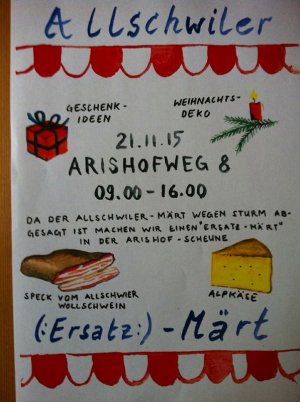 Allschwiler
GESCHENK-
IDEEN
WEIHNACHTS-
DEKO
21.11.15
ARISHOFWEG 8
09.00-16.00
DA DER ALLSCHWILER-MÄRT WEGEN STURM AB-
GESAGT IST MACHEN WIR EINEN "ERSATZ-MÄRT"
IN DER ARISHOF-SCHEUNE
SPECK VOM ALLSCHWILER
WOLLSCHWEIN
ALPKÄSE
(:Ersatz:)-Märt